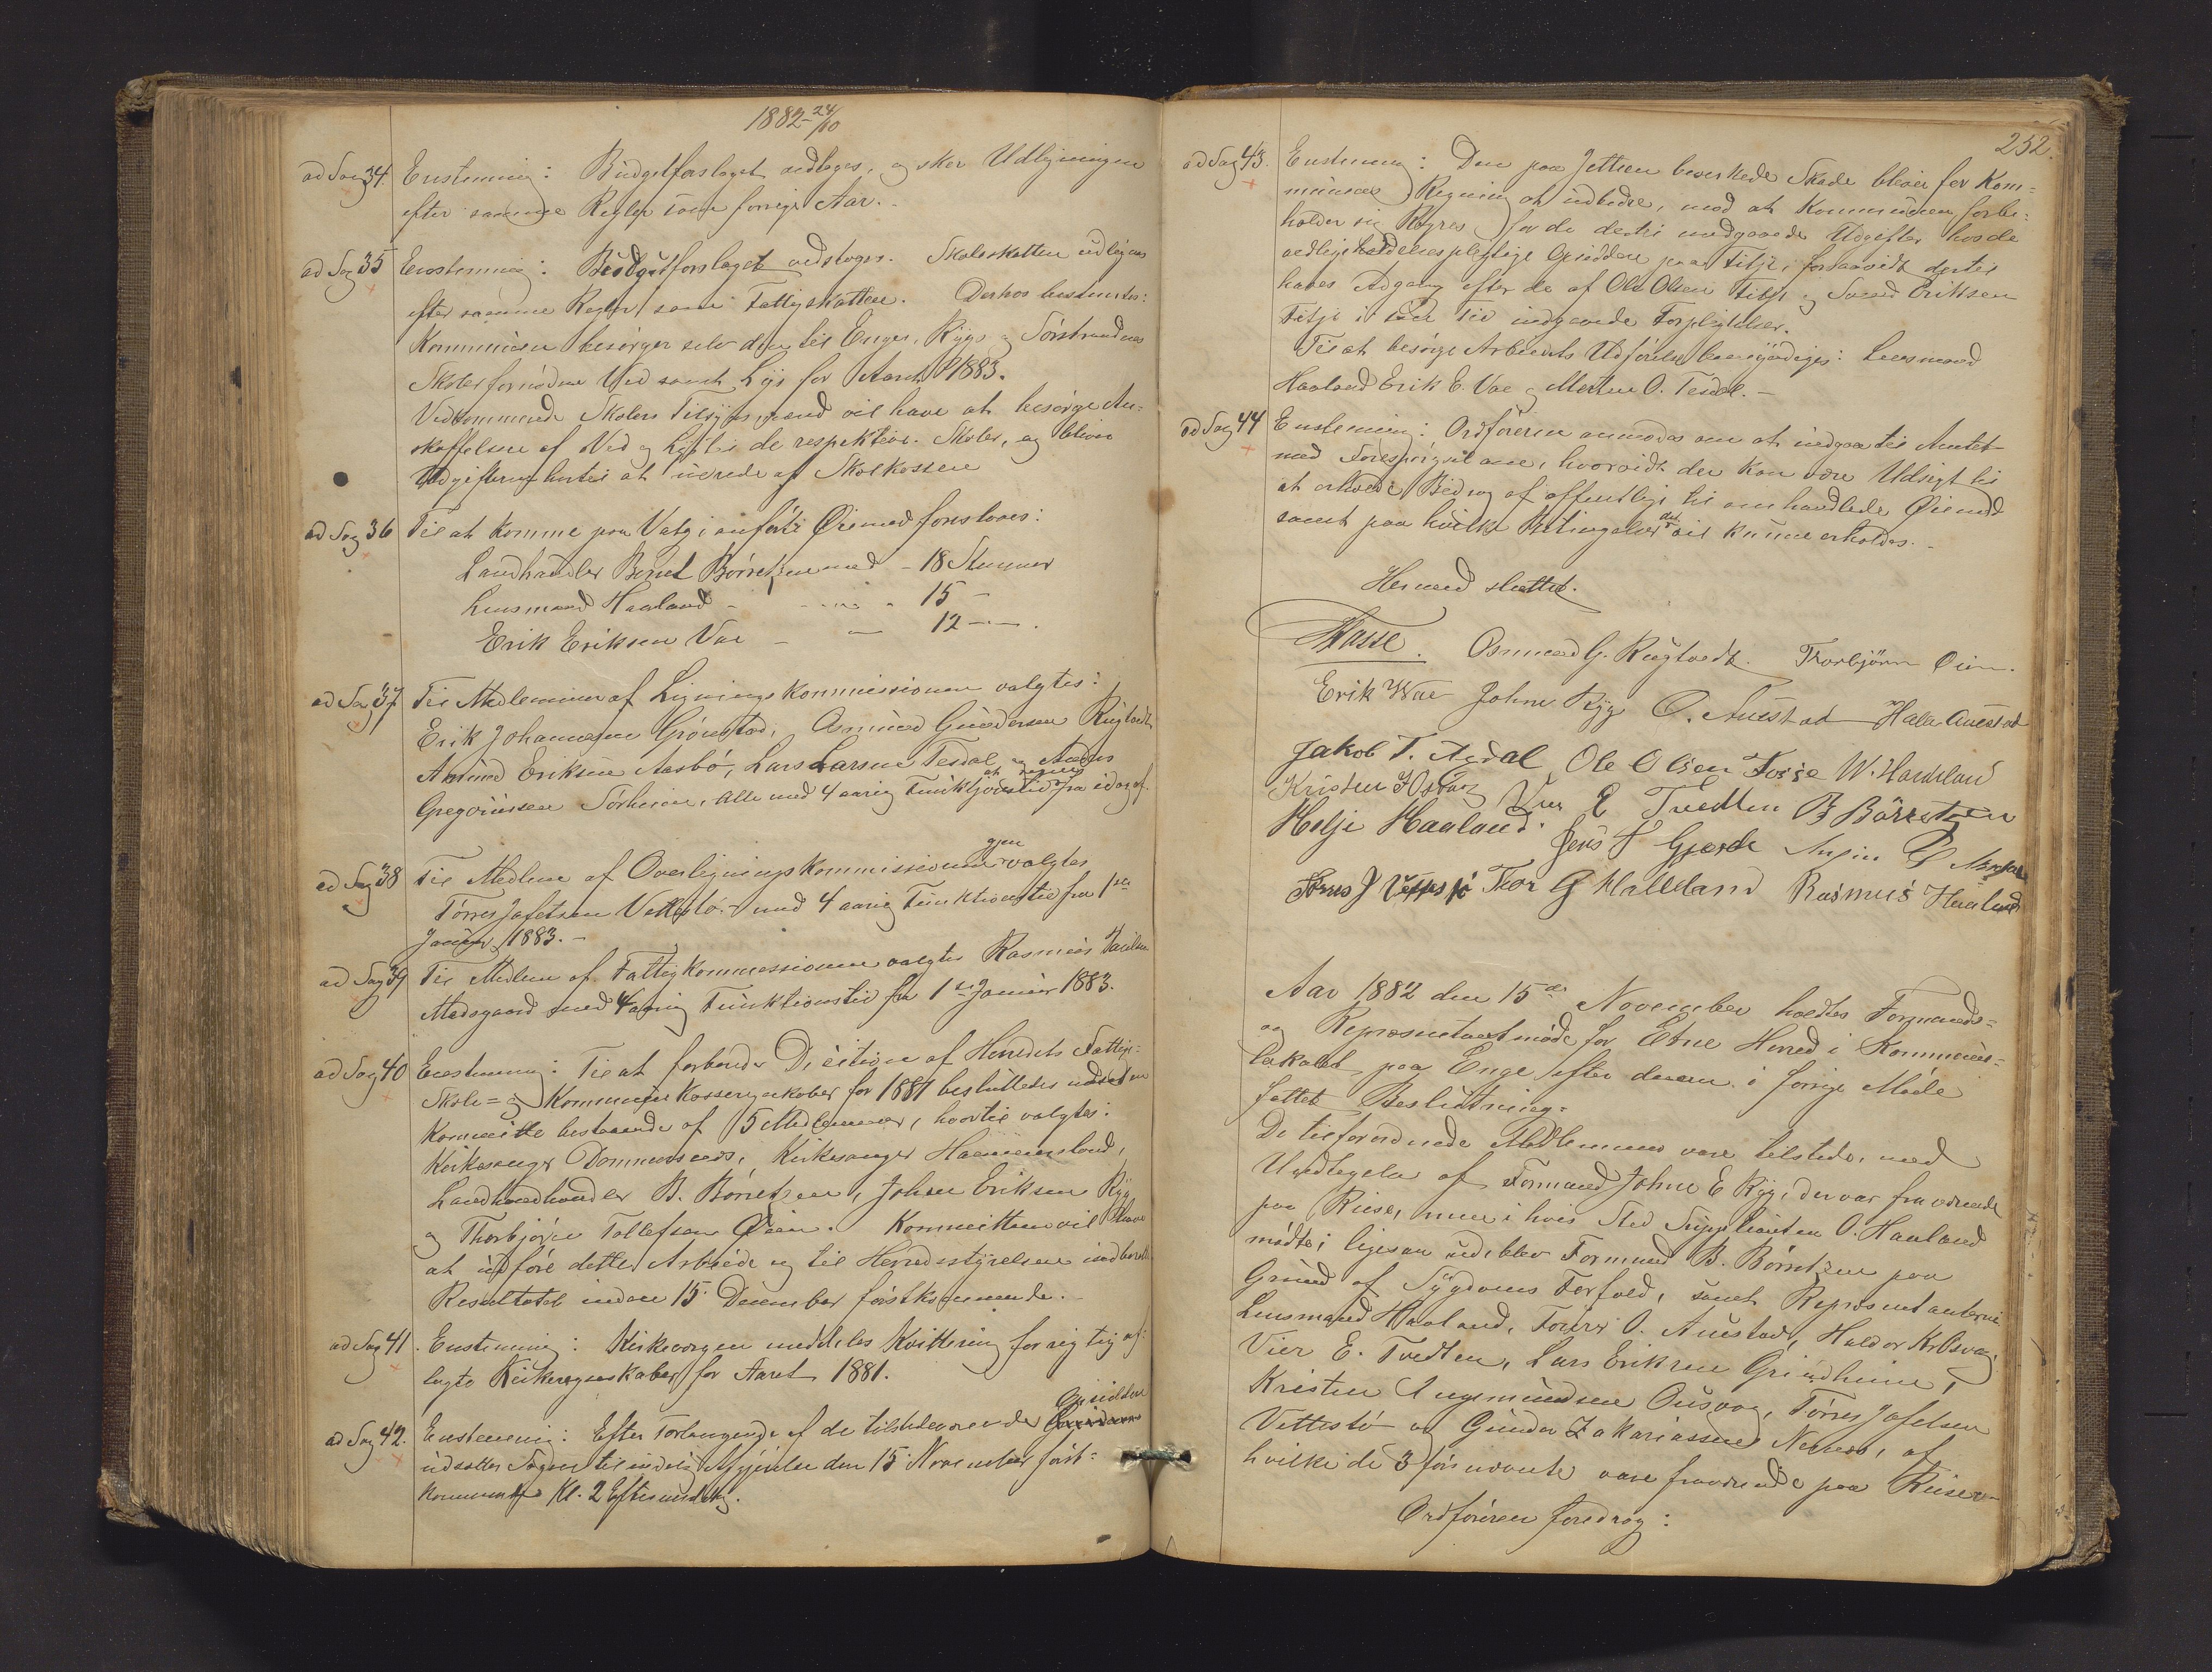 1882 - 24/10
ad Sag 34. Enstemmig: Budgetforslaget vedtages, og sker Udligningen
efter samme Regler som forrige Aar.
ad Sag 35 Enstemmig: Budgetforslaget vedtages. Skoleskatten udlignes
efter samme Regler som Fattigskatten. Derhos bestemtes:
Kommunen besørger selv den til Enges, Rygs og Sørstrandens
Skoler fornødne Ved samt Lys for Aaret 1883.
Vedkommende Skolers Tilsynsmænd vil have at besørge An-
skaffelsen af Ved og Lys til de respektive Skoler, og bliver
Udgifterne hertil at udrede af Skolekassen
ad Sag 36 Til at komme paa Valg i anførte Øiemed foresloges:
Landhandler Bernt Børretzen med - 18 Stemmer
Lensmand Haaland - - 15 -
Erik Eriksen Vae - - 12 - .
ad Sag 37 Til Medlemmer af Ligningskommissionen valgtes:
Erik Johannessen Grønstad, Osmund Gundersen Rugtvedt
Amund Eriksen Aasbø, Lars Larsen Tesdal, og Anders
Gregoriussen Sørheim, alle med 4 aarig Funktjonstid at regne fra idag af.
ad Sag 38 Til Medlem af Overligningskommissionen gjenvalgtes
Tørres Jafetsen Vettestø med 4 aarig Funktionstid fra 1ste
Januar 1883. -
ad Sag 39 Til Medlem af Fattigkommissionen valgtes Rasmus
Madsgaard med 4 aarig Funktionstid fra 1ste Januar 1883.
ad Sag 40 Enstemmig: Til at forberede Decision af Herredets Fattig-
Skole- og Kommunekasseregnskaber for 1881 besluttedes udset en
Komite bestaaende af 5 Medlemmer, hvortil valgtes:
Kirkesanger Dommersnes, Kirkesanger
Landhandler B. Børretzen, Johne Eriksen Ryg
og Thorbjørn Tollefsen Øien. Kommitteen vil have
at udføre dette Arbeide og til Herredsstyrelsen indberette
Resultatet inden 15 December førstkommende.
ad Sag 41. Enstemmig: Kirkevergen meddeles Kvittering for rigtig af-
lagte Kirkeregnskaber for Aaret 1881.
ad Sag 42. Enstemmig: Efter Forlangende af de tilstedeværende Opsiddere
udsattes Sagen til endelig Afgjørelse den 15 November først-
kommende Kl. 2 Eftermiddag.
252.
ad Sag 43. Enstemmig: Den paa Jettéen bevirkede Skade bliver for Kom-
munens Regning at udbedre, mod at Kommunen forbe-
holder sig Regres for de dertil medgaaede Udgifter hos de
vedligeholdelsespligtige Opsiddere paa Fitje, forsaavidt dertil
haves Adgang efter de af Ole Olsen Fitje og Svend Eriksen
Fitje i sin Tid indgaaede Forpligtelser.
Til at besørge Arbeidets Udførelse bemyndiges: Lensmand
Haaland Erik E. Vae og Morten O. Tesdal. -
ad Sag 44 Enstemmig: Ordføreren anmodes om at indgaa til Amtet
med Forespørgsel om, hvorvidt der kan være Udsigt til
at erholde Bidrag af offentlige til omhandlede Øiemed
samt paa hvilke Betingelser det vil kunne erholdes. -
Hermed sluttet.
Osmund G. Rugtvedt. Thorbjørn Øien.
Erik Wae Johne Ryg O. Austad
Jakob T. Ardal Ole Olsen Fosse W. Haaland
E Tvedten B Børretzen
Helje Haaland. Jens J Gjerde
Tørres J Vettestø Thor G Halleland Rasmus Haaland
Aar 1882 den 15de November holdtes Formands-
og Repræsentantmøde for Etne Herred i Kommune-
lokalet paa Enge efter derom i forrige Møde
fattet Beslutning.
De tilforordnede Medlemmer vare tilstede, med
Undtagelse af Formand Johne E Ryg, der var fraværende
paa Reise, men i hvis Sted Suppleanten O. Haaland
mødte; ligesaa udeblev Formand B. Børretzen paa
Grund af Sygdoms Forfald, samt Repræsentanterne
Lensmand Haaland, O. Austad, Haldor
Vier E. Tvedten, Lars Eriksen Grindheim,
Kristen Ingemundsen Østvaag, Tørres Jafetsen
Vettestø og Gunder Zakariassen Nernes, af
hvilke de 3 førstnævnte vare fraværende paa Reiser.
Ordføreren foredrog: